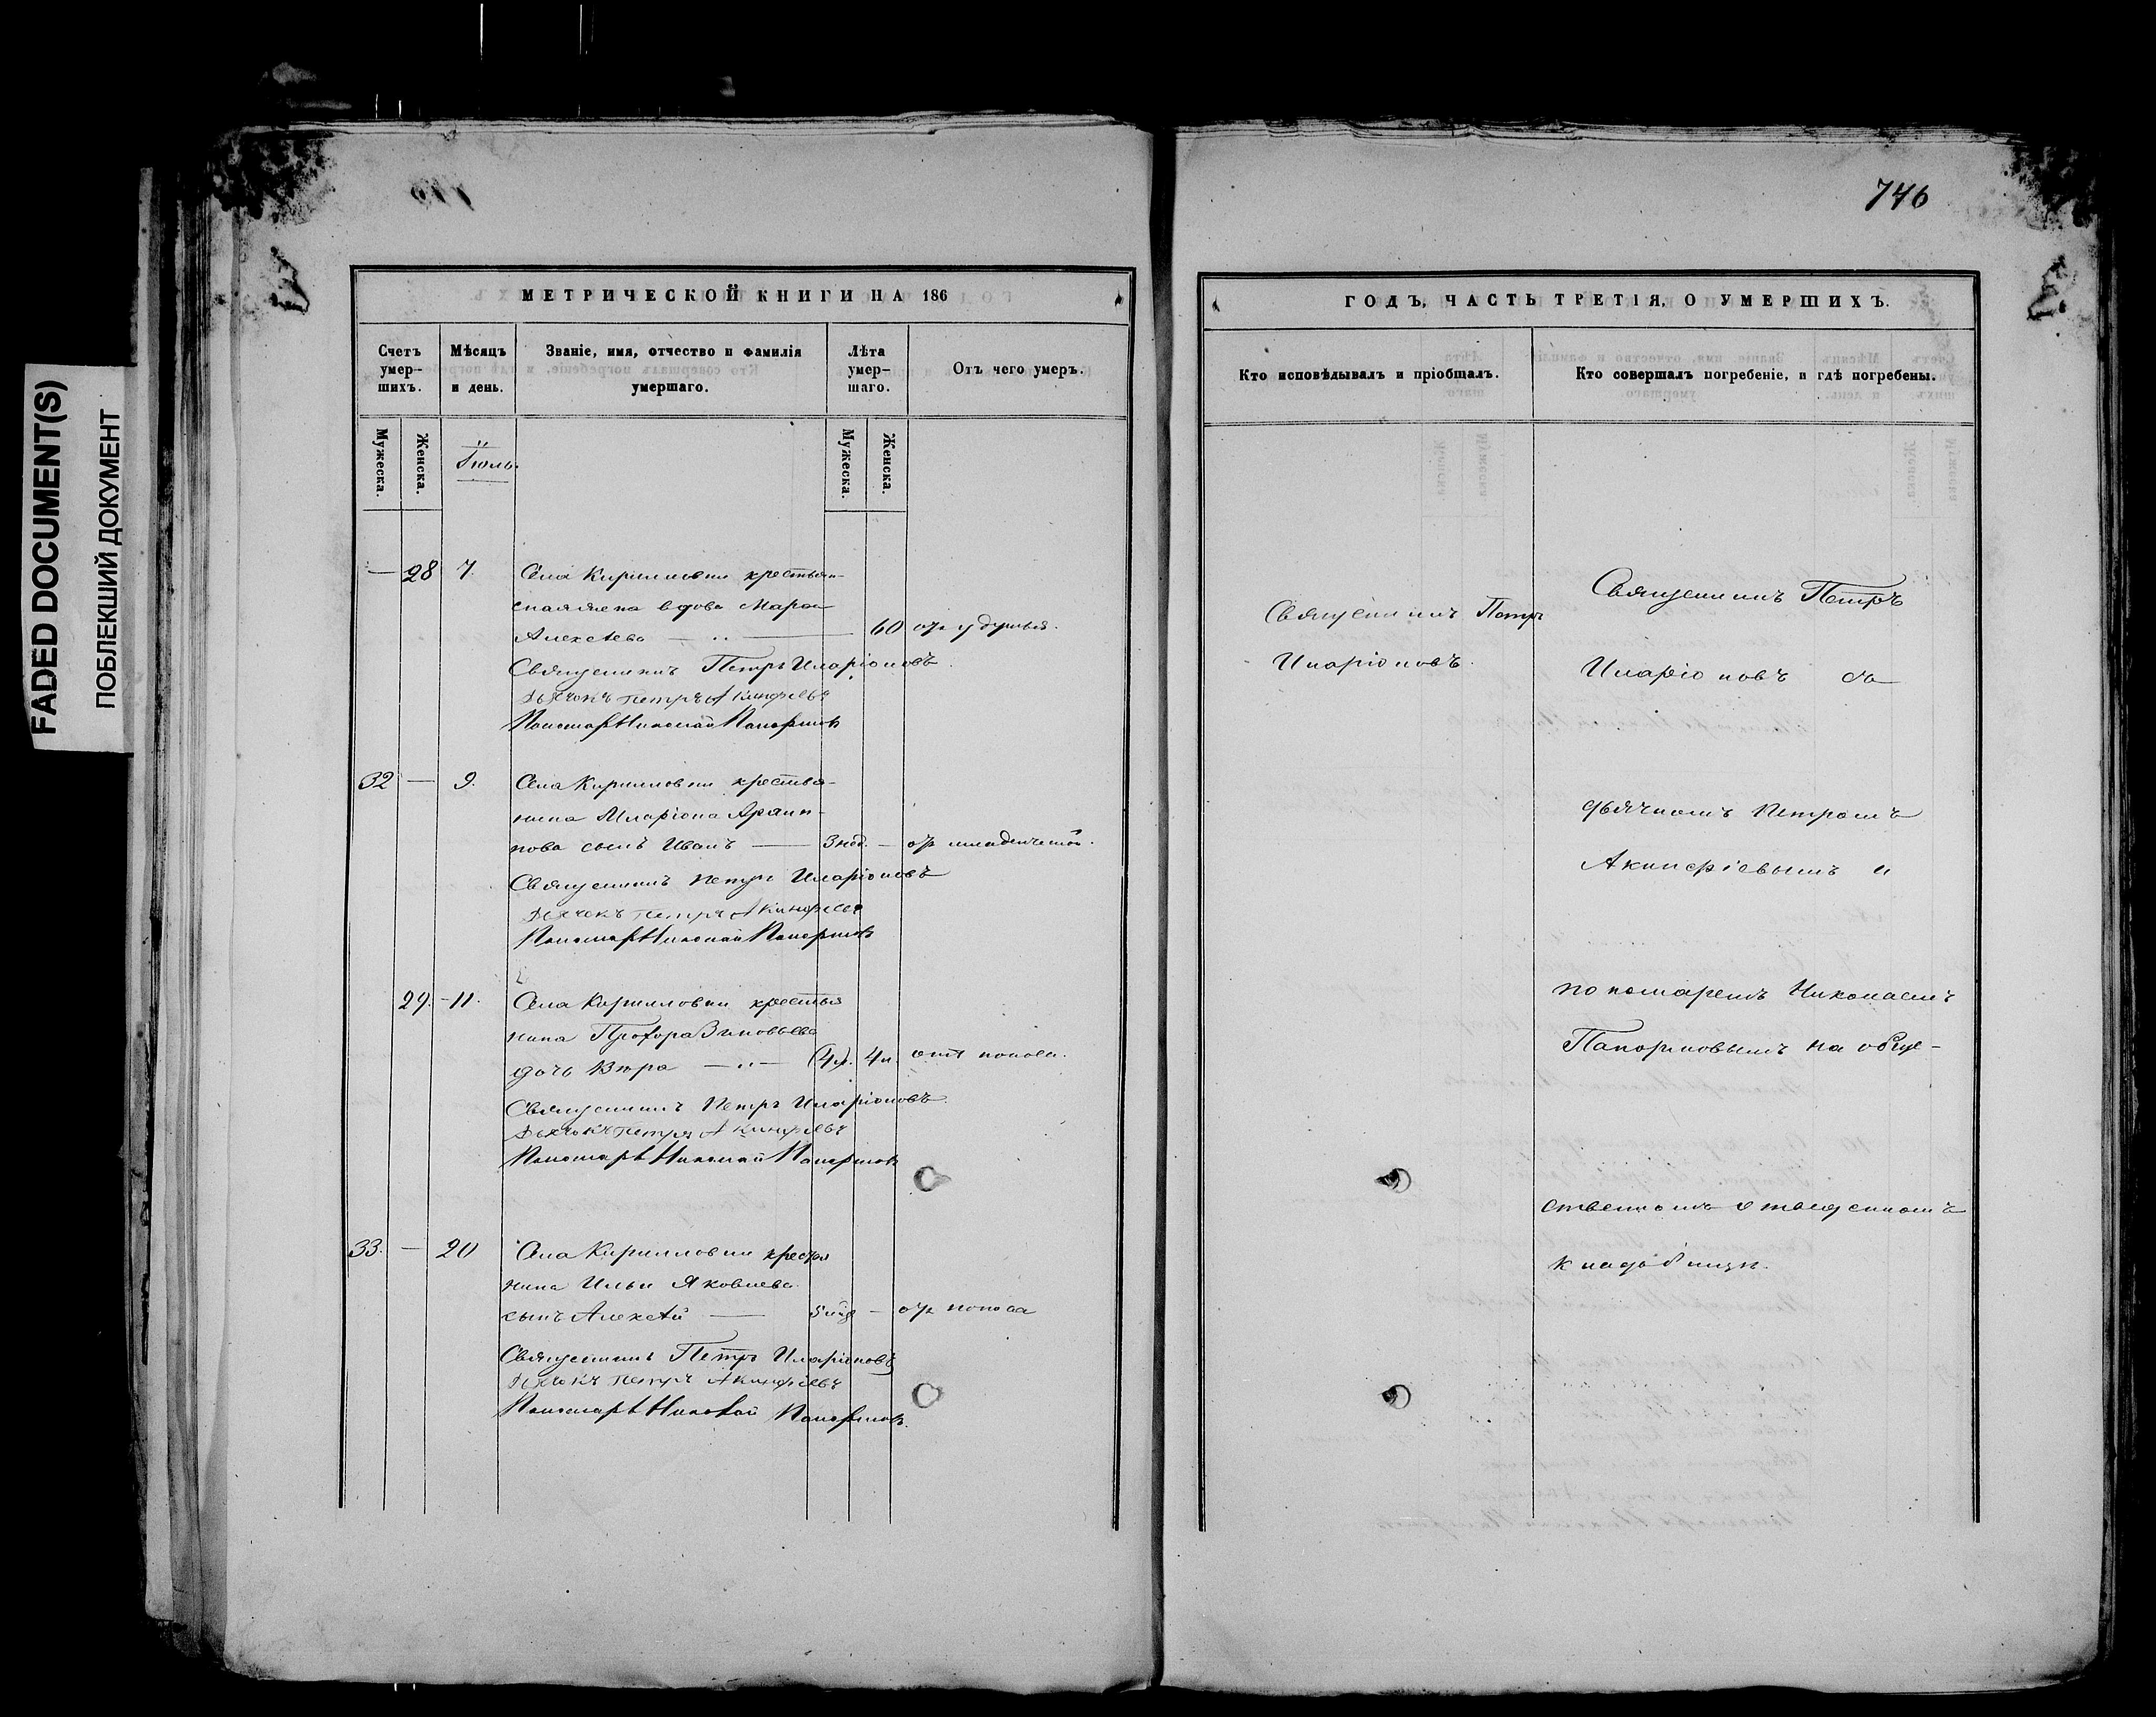 FADED DOCUMENT(S)
ПОБЛЕКШИЙ ДОКУМЕНТ
746
МЕТРИЧЕСКОЙ КНИГИ НА 186
Счетъ умер-шихъ.
Мѣсяцъ и день.
Званіе, имя, отчество и фамилія умершаго.
Лѣта умер-шаго.
Отъ чего умеръ.
Мужеска.
Женска.
Іюль.
Мужеска.
Женска.
— 28 7. Села Кирилловки крестьян-
вдова Марѳа
Алексѣева — 60 отъ удушья.
Священникъ Петръ Иларіоновъ.
Дьячокъ Петръ Акинфіевъ
Пономарь Николай Напорновъ
32 — 9. Села Кирилловки крестья-
нина Иларіона
сынъ Иванъ — 3 нед. — отъ младенческой.
Священникъ Петръ Иларіоновъ
Дьячокъ Петръ Акинфіевъ
Пономарь Николай Напорновъ
29. - 11. Села Кирилловки крестья
нина Прохора Зиновьева
дочь Вѣра — 4 н. отъ поноса.
Священникъ Петръ Иларіоновъ.
Дьячокъ Петръ Акинфіевъ
Пономарь Николай Напорновъ
33. — 20 Села Кирилловки крестья
нина Ильи Яковлева
сынъ Алексѣй — — отъ поноса
Священникъ Петръ Иларіоновъ
Дьячокъ Петръ Акинфіевъ
Пономарь Николай Напорновъ.
ГОДЪ, ЧАСТЬ ТРЕТІЯ, О УМЕРШИХЪ.
Кто исповѣдывалъ и пріобщалъ.
Кто совершалъ погребеніе, и гдѣ погребены.
Священникъ Петръ
Иларіоновъ.
Священникъ Петръ
Иларіоновъ съ
дьячкомъ Петромъ
Акинфіевымъ и
пономаремъ Николаемъ
Напорновымъ на обще-
ственномъ отведенномъ
кладбищѣ.